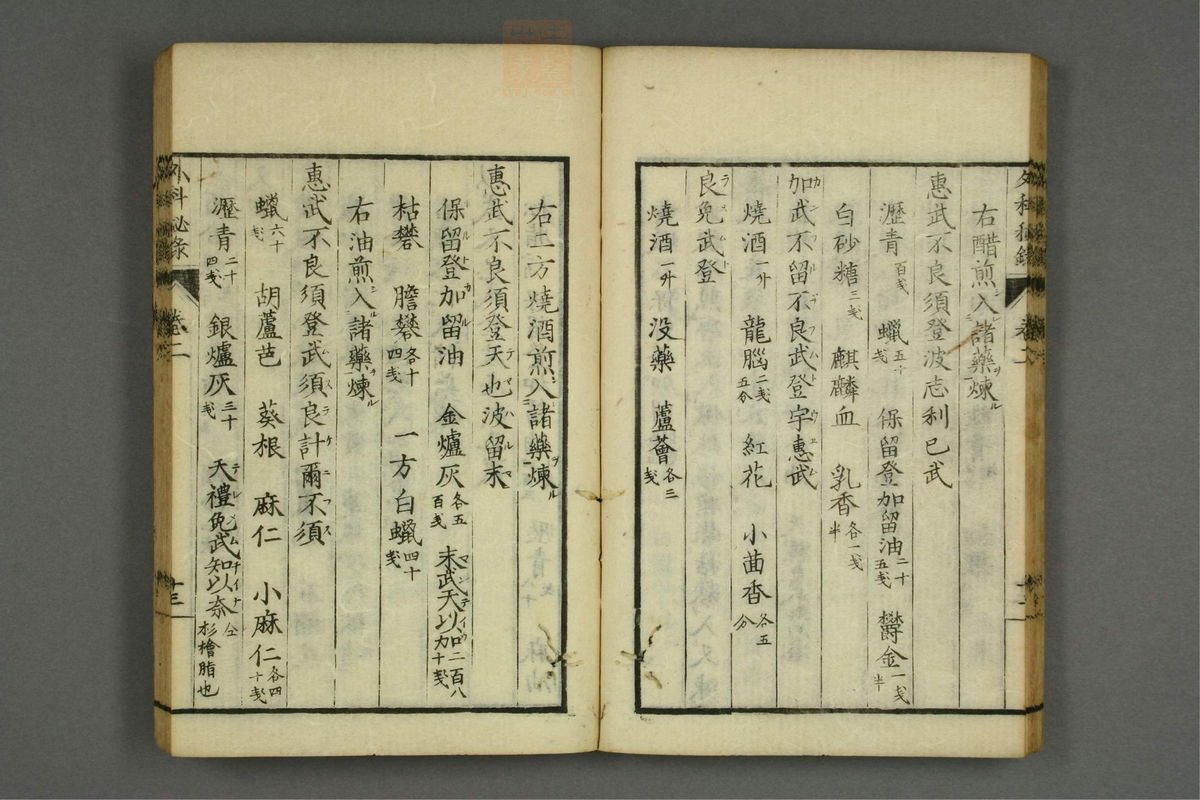 右醋煎ニ入諸藥ヲ煉ル
惠武不良須登波志利巳武
瀝青百戔 蠟五十戔 保留登加留油二十五戔 欝金一戔半
白砂糖三戔 麒麟血 乳香各一戔半
加武不留不良武登宇惠武
燒酒一升 龍腦二戔五分 紅花 小茴香各五分
良免武登
燒酒一升 没藥 蘆薈各三戔
右二方燒酒煎ニ入諸藥ヲ煉ル
惠武不良須登天也波留末
保留登加留油 金爐灰各五百戔 末武天以加二百八十戔
枯礬 膽礬各十四戔 一方白蠟四十戔
右油煎ニ入諸藥ヲ煉ル
惠武不良須登武須良計爾不須
蠟六十戔 胡蘆芭 葵根 麻仁 小麻仁各四十戔
瀝青二十四戔 銀爐灰三十戔 天禮免武知以奈 杉檜脂也
外科秘錄 卷二 十三